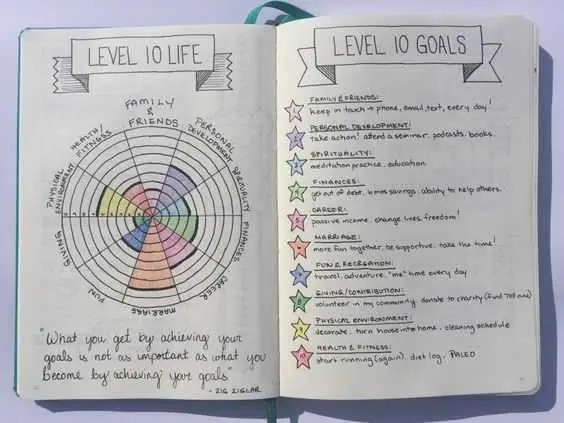 LEVEL 10 LIFE
FAMILY
&
FRIENDS
PERSONAL
DEVELOPMENT
SPIRITUALITY
FINANCES
CAREER
MARRIAGE
FUN
GIVING
PHYSICAL
ENVIRONMENT
HEALTH/
FITNESS
"What you get by achieving your
goals is not as important as what you
become by achieving your goals"
- ZIG ZIGLAR
LEVEL 10 GOALS
FAMILY & FRIENDS:
1 keep in touch → phone, email, text, every day!
PERSONAL DEVELOPMENT:
2 take action! attend a seminar. podcasts. books.
SPIRITUALITY:
3 meditation practice. education.
FINANCES:
4 get out of debt. savings. ability to help others.
CAREER:
5 passive income. change lives. freedom!
MARRIAGE:
6 more fun together. be supportive. take the time!
FUN & RECREATION:
7 travel. adventure. "me" time every day
GIVING/CONTRIBUTION:
8 volunteer in my community. donate to charity (Fund
PHYSICAL ENVIRONMENT:
9 decorate. turn house into home. cleaning schedule
HEALTH & FITNESS:
10 start running (again). diet log. PALEO